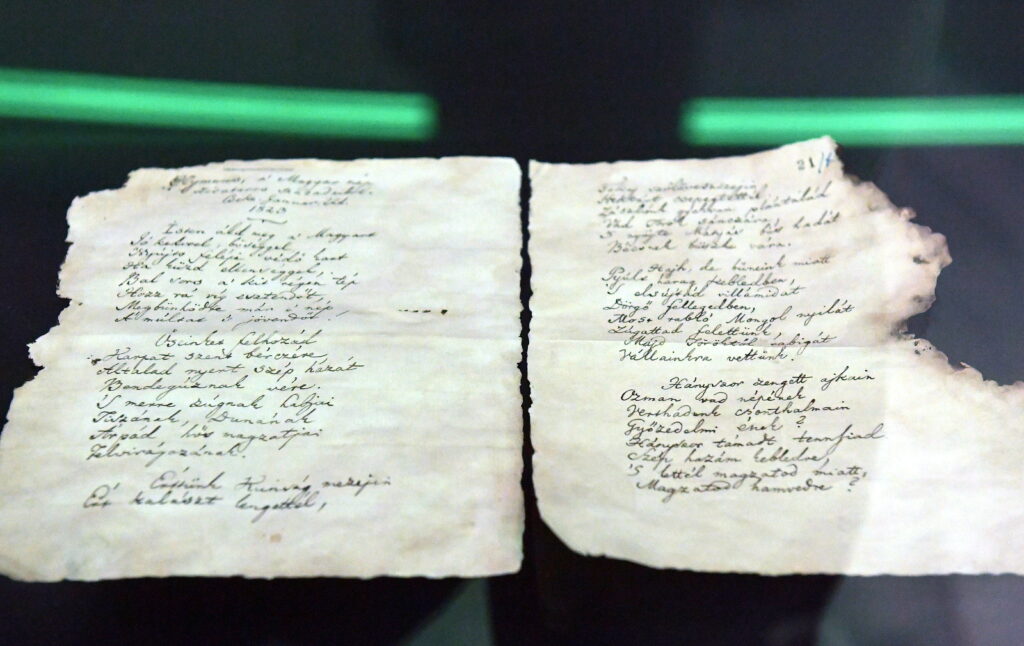 Hymnus, a' Magyar nép
zivataros századaiból.
Januar.
1823
Isten áldd meg a' Magyart
Jó kedvvel, bőséggel,
Nyújts feléje védő kart
Ha küzd ellenséggel;
Bal sors a' kit régen tép
Hozz rá víg esztendőt,
Megbünhödte már a' nép
A' múltat 's jövendőt.
Őseinket felhozád
Karpat szent bérczére,
Általad nyert szép hazát
Bendegúznak vére.
'S merre zúgnak habjai
Tiszának, Dunának
Árpád hős magzatjai
Felvirágozának.
Értünk Kunság mezejin
Ért kalászt lengettél,
21/
Tokaj szőlővesszejin
Nektárt csepegtettél.
Zászlónk gyakran plántálád
Vad Török sánczára,
'S nyögte Mátyás bús hadát
Bécsnek büszke vára.
Hajh, de bűneink miatt
Gyúlt harag kebledben,
'S elsújtád villámidat
Dörgő fellegedben,
Most rabló Mongol nyilát
Zúgattad felettünk,
Majd Töröktől rabigát
Vállainkra vettünk.
Hányszor zengett ajkain
Ozman vad népének
Vert hadunk csonthalmain
Győzedelmi ének?
Hányszor támadt tennfiad
Szép hazám kebledre,
'S lettél magzatod miatt,
Magzatod hamvedre?